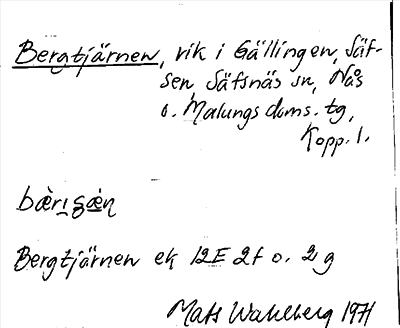 Bergtjärnen, vik i Gällingen, Säf-
sen Säfsnäs sn, Nås
o. Malungs doms. tg,
Kopp. l.
Bergtjärnen ek 12E 2f o. 2g
Mats Wahlberg 1971